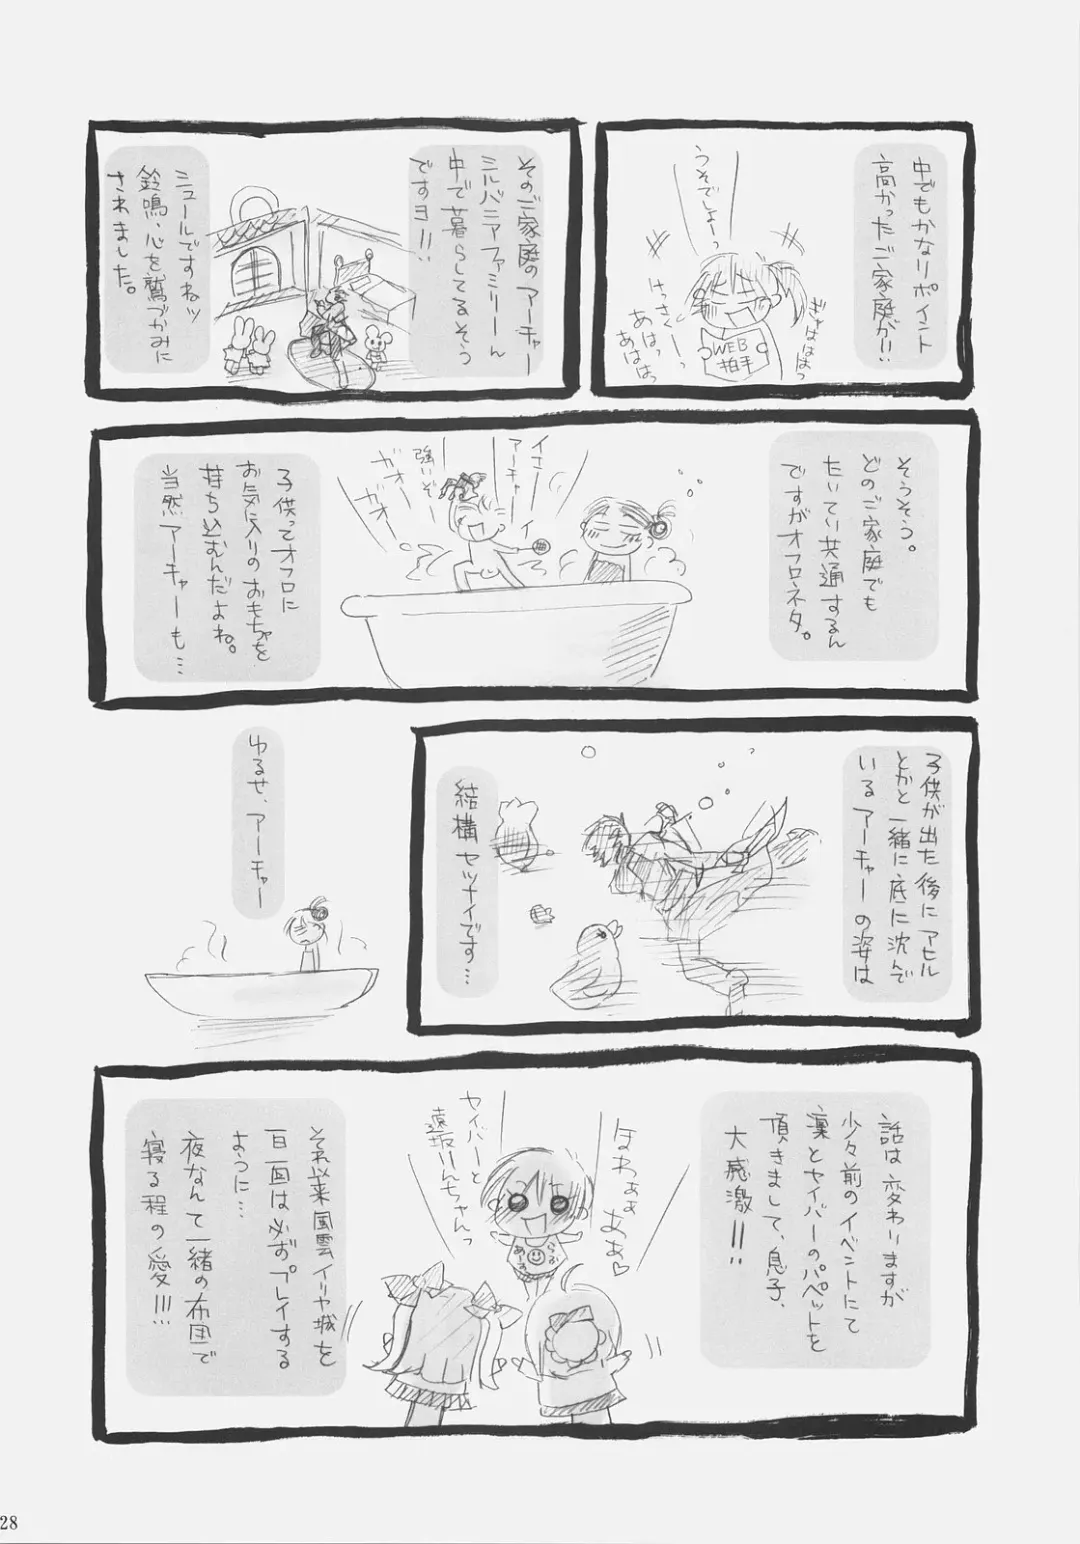 中でもかなりポイント
高かったご家庭が!!
うそでしょーっ
けっさくーっ
あはっ
あははっ
ぎゃははっ
WEB
拍手
そのご家庭のアーチャー
シルバニアファミリーん
中で暮らしてるそう
ですヨ!!
シュールですねッ
鈴鳴、心を鷲づかみに
されました。
そうそう。
どのご家庭でも
たいてい共通するん
ですがオフロネタ。
イさー
アーチャー
強いぞー
ガオー
ガオー
子供ってオフロに
お気に入りのおもちゃを
持ち込むんだよね。
当然アーチャーも…
子供が出た後にアヒル
とかと一緒に底に沈んで
いるアーチャーの姿は
結構セツナイです…
ゆるせ、アーチャー
話は変わりますが
少々前のイベントにて
凛とセイバーのパペットを
頂きまして、息子、
大感激!!
ほわぁぁ
あぁ♡
セイバーと
遠坂りんちゃんっ
それ以来風雲イリヤ城を
一日一回は必ずプレイする
ように…
夜なんて一緒の布団で
寝る程の愛!!!
28